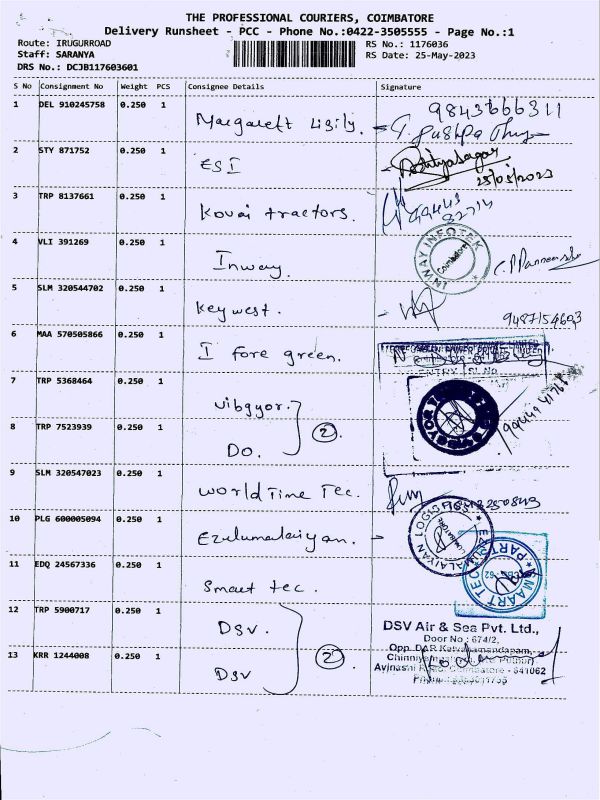 THE PROFESSIONAL COURIERS, COIMBATORE
Delivery Runsheet - PCC - Phone No.:0422-3505555 - Page No.:1
Route: IRUGURROAD RS No.: 1176036
Staff: SARANYA RS Date: 25-May-2023
DRS No.: DCJB117603601
S No Consignment No Weight PCS Consignee Details Signature
1 DEL 910245758 0.250 1 Margarett 9843666311
2 STY 871752 0.250 1 ESI 25/05/2023
3 TRP 8137661 0.250 1 Kovai tractors.
4 VLI 391269 0.250 1 Inway. INWAY INFOTEK Coimbatore
5 SLM 320544702 0.250 1 Keywest. 9487154603
6 MAA 570505866 0.250 1 I fore green. ENTRY Sl.No
7 TRP 5368464 0.250 1 Vibgyor.
8 TRP 7523939 0.250 1 Do. 2
9 SLM 320547023 0.250 1 World Time Tec.
10 PLG 600005094 0.250 1 Ezulumalaiyan.
11 EDQ 24567336 0.250 1 Smart tec.
12 TRP 5900717 0.250 1 DSV.
13 KRR 1244008 0.250 1 DSV 2
DSV Air & Sea Pvt. Ltd.,
Door No.: 674/2,